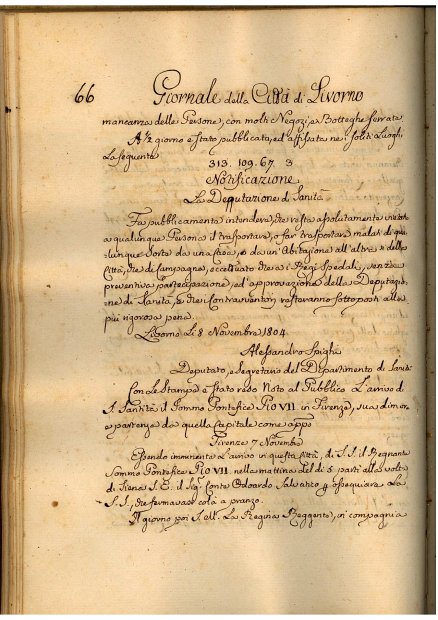 66 Giornale della Città di Livorno
mancanza delle Persone, con molti Negozj, e Botteghe serrate
A ½ giorno è stato pubblicata, ed affissata nei soliti Luoghi
La seguente
313. 109. 67. 3
Notificazione
La Deputazione di Sanità
Fa pubblicamente intendere, che resta assolutamente vietato
a qualunque Persona il trasportare, o far trasportare malati di qua-
lunque sorte da una stessa, o da un'Abitazione all'altra e della
Città, che di Campagna, eccettuato che a i Regj Spedali, senza
preventiva partecipazione, ed approvazione della Deputazio-
ne di Sanità, e che i contravventori resteranno sottoposti alla
più rigorosa pena.
Livorno Li 8 Novembre 1804.
Alessandro Spighi
Deputato, e segretario del Dipartimento di Sanità
Con Le Stampe è stato reso Noto al Pubblico L'arrivo di
S. Santità il Sommo Pontefice Pio VII in Firenze, sua dimora
e partenza da quella Capitale come app.o
Firenze 7 Novembre
Essendo imminente L'arrivo in questa Città, di S. S. il Regnante
Sommo Pontefice Pio VII. nella mattina del dì 5 partì alla volta
di Siena S. E. il Sig.r Conte Odoardo Salvatico p ossequiare La
S. S., che fermavasi colà a pranzo.
Il giorno poi S. M. La Regina Reggente, in compagnia